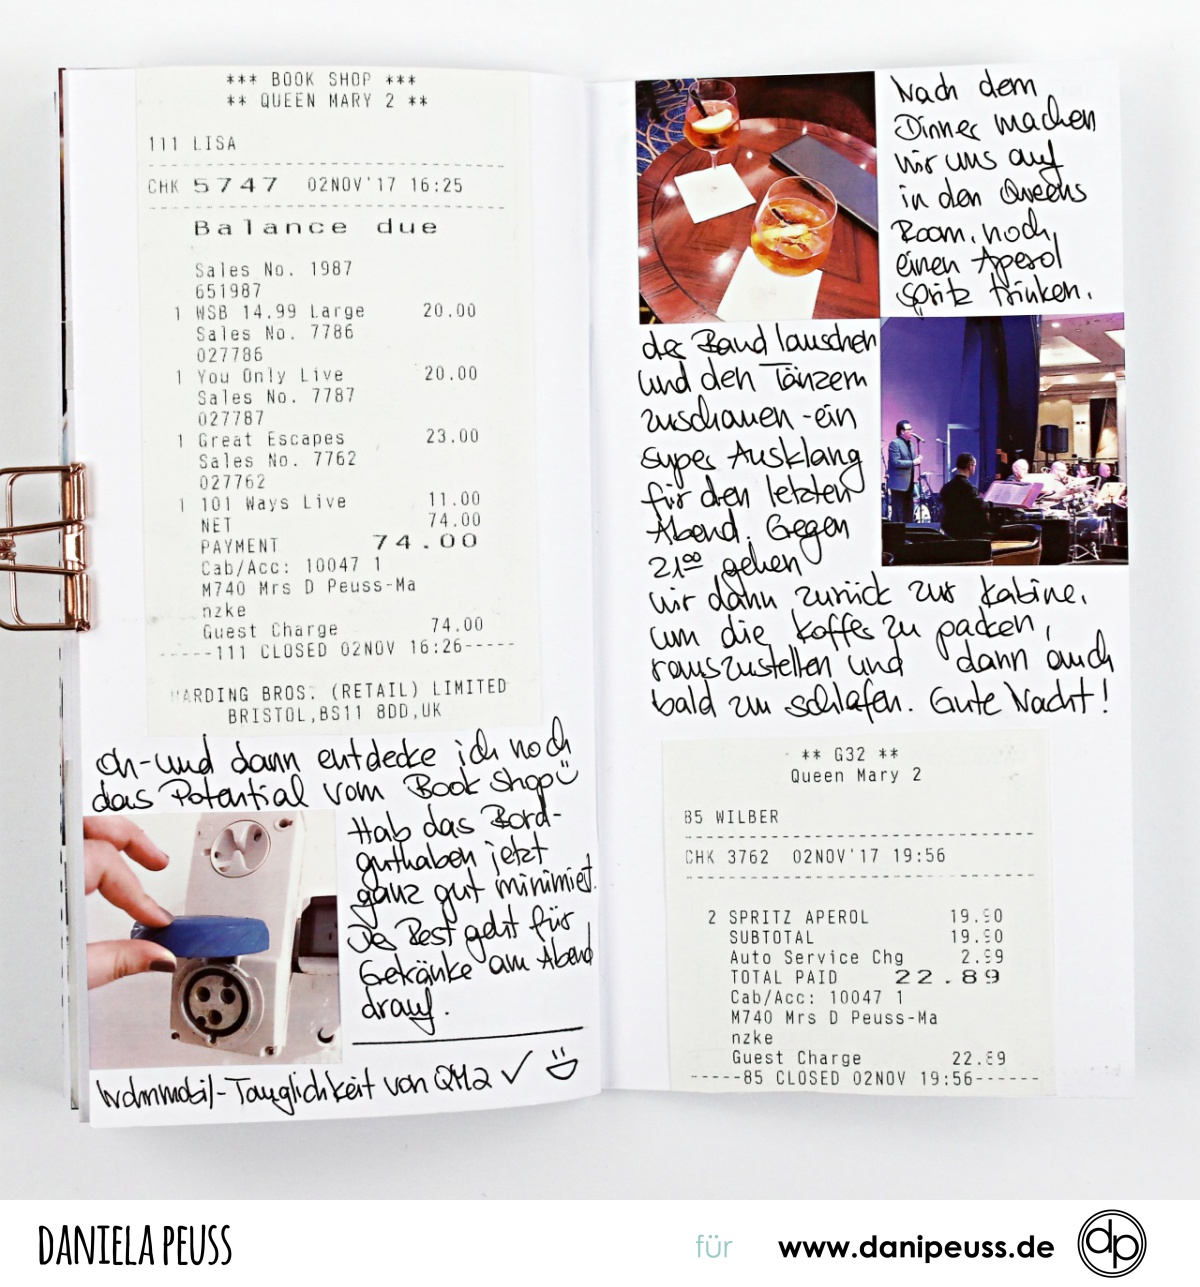 *** BOOK SHOP ***
** QUEEN MARY 2 **
111 LISA
CHK 5747 02NOV'17 16:25
Balance due
Sales No. 1987
651987
1 WSB 14.99 Large 20.00
Sales No. 7786
027786
1 You Only Live 20.00
Sales No. 7787
027787
1 Great Escapes 23.00
Sales No. 7762
027762
1 101 Ways Live 11.00
NET 74.00
PAYMENT 74.00
Cab/Acc: 10047 1
M740 Mrs D Peuss-Ma
nzke
Guest Charge 74.00
-----111 CLOSED 02NOV 16:26-----
HARDING BROS. (RETAIL) LIMITED
BRISTOL,BS11 8DD,UK
Oh-und dann entdecke ich noch
das Potential vom Book Shop
Hab das Bord-
guthaben jetzt
ganz gut minimiert.
Der Rest geht für
Getränke am Abend
drauf.
Wohnmobil-Tauglichkeit von QM2 ✓
Nach dem
Dinner machen
wir uns auf
in den Queens
Room, noch
einen Aperol
Spritz trinken,
der Band lauschen
und den Tänzern
zuschauen - ein
super Ausklang
für den letzten
Abend. Gegen
21⁰⁰ gehen
wir dann zurück zur Kabine,
um die Koffer zu packen,
rauszustellen und dann auch
bald zu schlafen. Gute Nacht!
** G32 **
Queen Mary 2
85 WILBER
CHK 3762 02NOV'17 19:56
2 SPRITZ APEROL 19.90
SUBTOTAL 19.90
Auto Service Chg 2.99
TOTAL PAID 22.89
Cab/Acc: 10047 1
M740 Mrs D Peuss-Ma
nzke
Guest Charge 22.89
-----85 CLOSED 02NOV 19:56------
DANIELA PEUSS
für www.danipeuss.de
dp